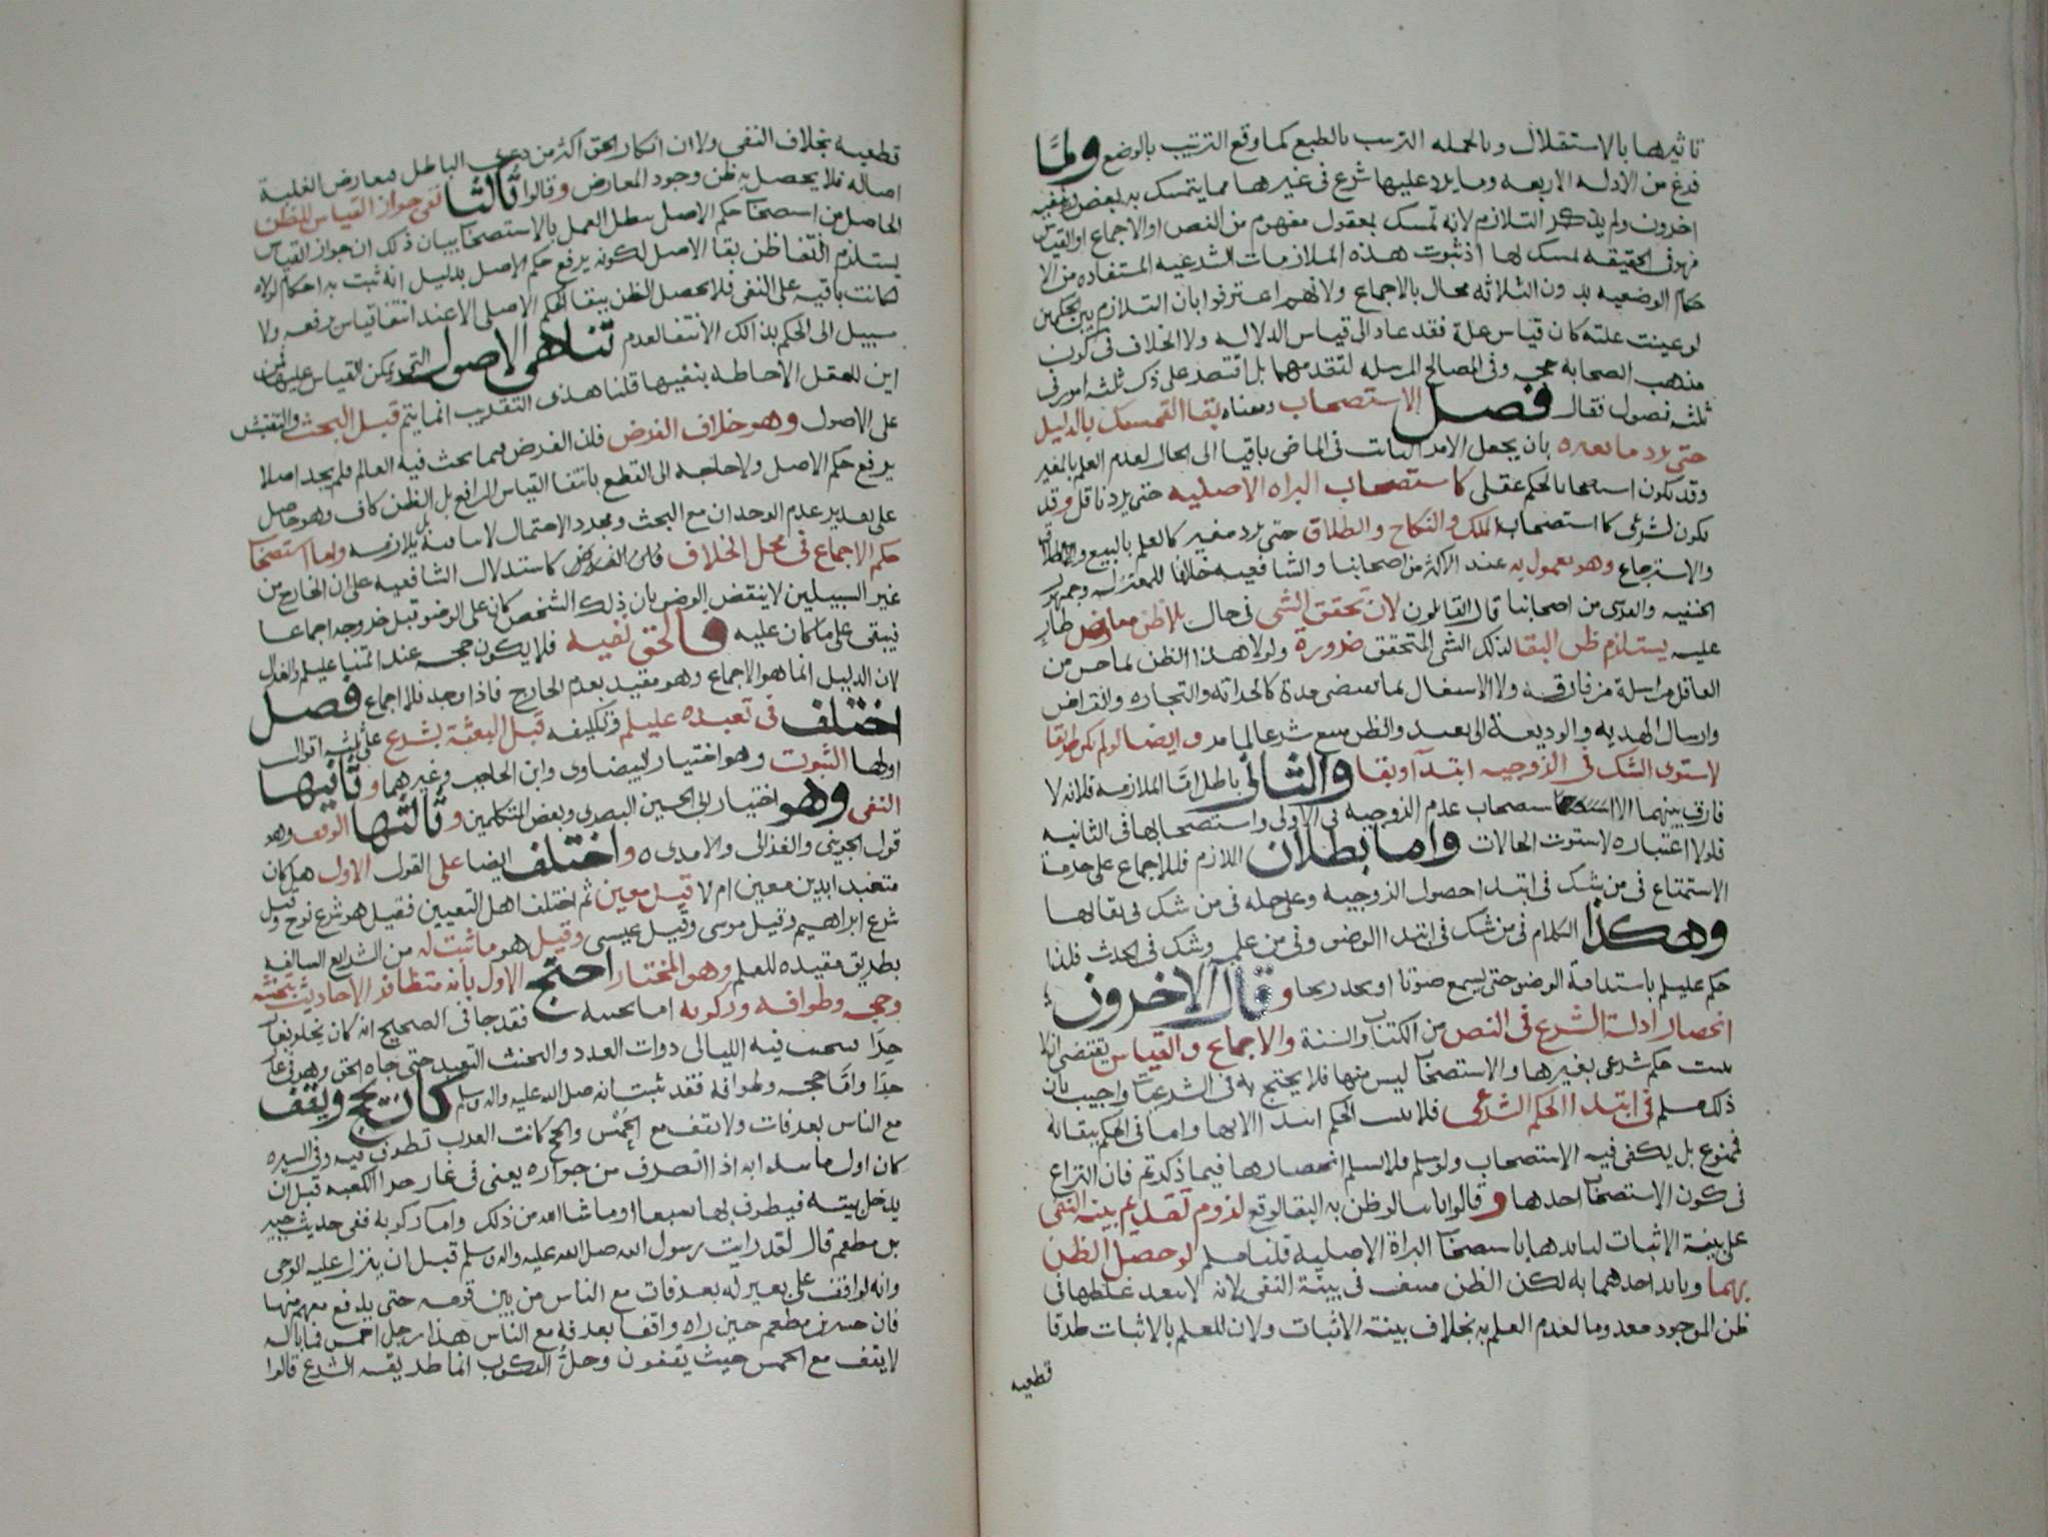 تاثيرها بالاستقلال وبالجمله الترتيب بالطبع كما وقع الترتيب بالوضع ولما
فرغ من الادله الاربعه وما يرد عليها شرع فى غيرها مما يتمسك به بعض ونفيه
اخرون ولم يذكر التلازم لانه تمسك بمعقول مفهوم من النص او الاجماع او القياس
فهو فى الحقيقه تمسك لها اذ ثبوت هذه الملازمات الشرعيه المستفاده من الا
حكام الوضعيه بدون الثلاثه محال بالاجماع ولانهم اعترفوا بان التلازم بين الحكمين
لو عينت علته كان قياس علة فقد عاد الى قياس الدلاله ولا الخلاف فى كون
مذهب الصحابة حجه وفى المصالح المرسله لتقدمهما بل اقتصر على ذكر ثلثه امور فى
ثلثه فصول فقال فصل الاستصحاب ومعناه بقا التمسك بالدليل
حتى يرد ما يغيره بان يجعل الامر الثابت فى الماضى باقيا الى الحال لعدم العلم بالمغير
وقد يكون استصحابا لحكم عقلى كاستصحاب البراه الاصليه حتى يرد ناقل وقد
يكون لشرعى كاستصحاب الملك والنكاح والطلاق حتى يرد مغير كالعلم بالبيع والطلاق
والاسترجاع وهو معمول به عند الاكثر من اصحابنا والشافعيه خلافا للمعتزله وجمهور
الحنفيه والغرى من اصحابنا قال القائلون لان تحقق الشى فى حال بلا ظن معارض طار
عليه يستلزم ظن البقا لذلك الشى المتحقق ضرورة ولولا هذا الظن لما حسن من
العاقل مراسلة من فارقه ولا الاشتغال بما يقتضى مدة كالحراثه والتجاره والقراض
وارسال الهديه والوديعة الى بعيد والظن متبع شرعا لما مر وايضا لو لم يكن طريقا
لاستوى الشك فى الزوجيه ابتدآ وبقا والتالى باطل امّا الملازمه فلانه لا
فارق بينهما الا استصحاب عدم الزوجيه فى الاولى واستصحابها فى الثانيه
فلولا اعتباره لاستوت الحالات واما بطلان اللازم فللاجماع على حرمة
الاستمتاع فى من شك فى ابتدا حصول الزوجية وعلى حله فى من شك فى بقائها
وهكذا الكلام فى من شك فى ابتدا الوضو وفى من علمه وشك فى الحدث فلذا
حكم عليلم باستدامة الوضو حتى يسمع صوتا او يجد ريحا وقال الاخرون
انحصار ادلة الشرع فى النص من الكتاب والسنة والاجماع والقياس يقتضى انه لا
يثبت حكم شرعى بغيرها والاستصحاب ليس منها فلا يحتج به فى الشرعيات واجيب بان
ذلك مسلم فى ابتدا الحكم الشرعى فلا يثبت الحكم ابتدا الا بها واما فى الحكم ببقائه
فممنوع بل يكفى فيه الاستصحاب ولو سلم فلا نسلم انحصارها فيما ذكرتم فان النزاع
فى كون الاستصحاب احدها وقالوا ثانيا لو ظن به البقا لوقع لزوم تقديم بينة النفى
على بينة الاثبات لتايدها باستصحاب البراة الاصلية قلنا مسلم لو حصل الظن
بهما وتايد احدهما به لكن الظن منتف فى بينة النفى لانه لا يبعد غلطها فى
ظن الموجود معدوما لعدم العلم به بخلاف بينة الاثبات ولان للعلم بالاثبات طرقا
قطعيه
قطعيه بخلاف النفى ولان انكار الحق اكثر من دعوى الباطل فيعارض الغلبة
اصاله فلا يحصل به ظن وجود المعارض وقالوا ثالثا نفى جواز القياس للظن
الحاصل من استصحاب حكم الاصل يبطل العمل بالاستصحاب بيان ذلك ان جواز القياس
يستلزم انتفا ظن بقا الاصل لكونه يرفع حكم الاصل بدليل انه ثبت به احكام لولاه
لكانت باقيه على النفى فلا يحصل الظن ببقا الحكم الاصلى الا عند انتفا قياس يرفعه ولا
سبيل الى الحكم بذلك الانتفا لعدم تناهى الاصول التى يمكن القياس عليها فمن
اين للعقل الاحاطه بنفيها قلنا هذى التقريب انما يتم قبل البحث والتفتيش
على الاصول وهو خلاف الفرض فان الفرض فيما بحث فيه العالم فلم يجد اصلا
يرفع حكم الاصل ولا حاجه الى القطع بانتفا القياس الرافع بل الظن كاف وهو حاصل
على تقدير عدم الوجدان مع البحث ومجرد الاحتمال لا ينافيه بل يلازمه واما استصحاب
حكم الاجماع فى محل الخلاف كاستدلال الشافعيه على ان الخارج من
غير السبيلين لا ينقض الوضو بان ذلك الشخص كان على الوضو قبل خروجه اجماعا
فيبقى على ما كان عليه فالحق نفيه فلا يكون حجه عند ائمتنا عليلم والغزالى
لان الدليل انما هو الاجماع وهو مقيد بعدم الخارج فاذا وجد فلا اجماع فصل
اختلف فى تعبده عليلم وتكليفه قبل البعثة بشرع على ثلثه اقوال
اولها الثبوت وهو اختيار البيضاوى وابن الحاجب وغيرهما وثانيها
النفى وهو اختيار ابى الحسين البصرى وبعض المتكلمين وثالثها الوقف وهو
قول الجوينى والغزالى والامدى واختلف ايضا على القول الاول هل كان
متعبدا بدين معين ام لا قيل معين ثم اختلف اهل التعيين فقيل هو شرع نوح وقيل
شرع ابراهيم وقيل موسى وقيل عيسى وقيل هو ما ثبت له من الشرايع السالفه
بطريق مفيده للعلم وهو المختار احتج الاول بانه متظافر الاحاديث بتحنثه
وحجه وطوافه وركوبه اما تحنثه فقد جا فى الصحيح انه كان يخلو بغار
حرا يتحنث فيه الليالى ذوات العدد والتحنث التعبد حتى جاه الحق وهو فى غار
حرا وامّا حجه وطوافه فقد ثبت انه صل الله عليه واله وسلم كان يحج ويقف
مع الناس بعرفات ولا يقف مع الحُمْس والحج كانت العرب تطوف فيه وفى السيره
كان اول ما يبدا به اذا انصرف من جواره يعنى فى غار حرا الكعبه قبل ان
يدخل بيته فيطوف بها سبعا او ما شا الله من ذلك واما ركوبه ففى حديث جبير
بن مطعم قال لقد رايت رسول الله صل الله عليه واله وسلم قبل ان ينزل عليه الوحى
وانه لواقف على بعير له بعرفات مع الناس من بين قومه حتى يدفع معهم منها
مطعم حين راه واقفا بعرفه مع الناس هذا رجل احمس فما باله
لا يقف مع الحمس حيث يقفون وحلُّ الركوب انما طريقه الشرع قالوا